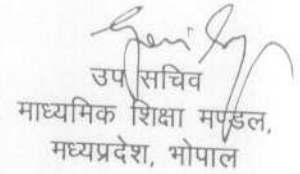 उप सचिव
माध्यमिक शिक्षा मण्डल,
मध्यप्रदेश, भोपाल